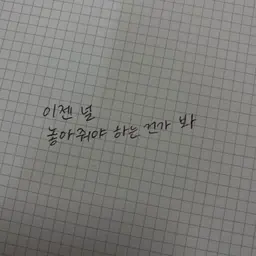 이젠 널
놓아줘야 하는 건가 봐